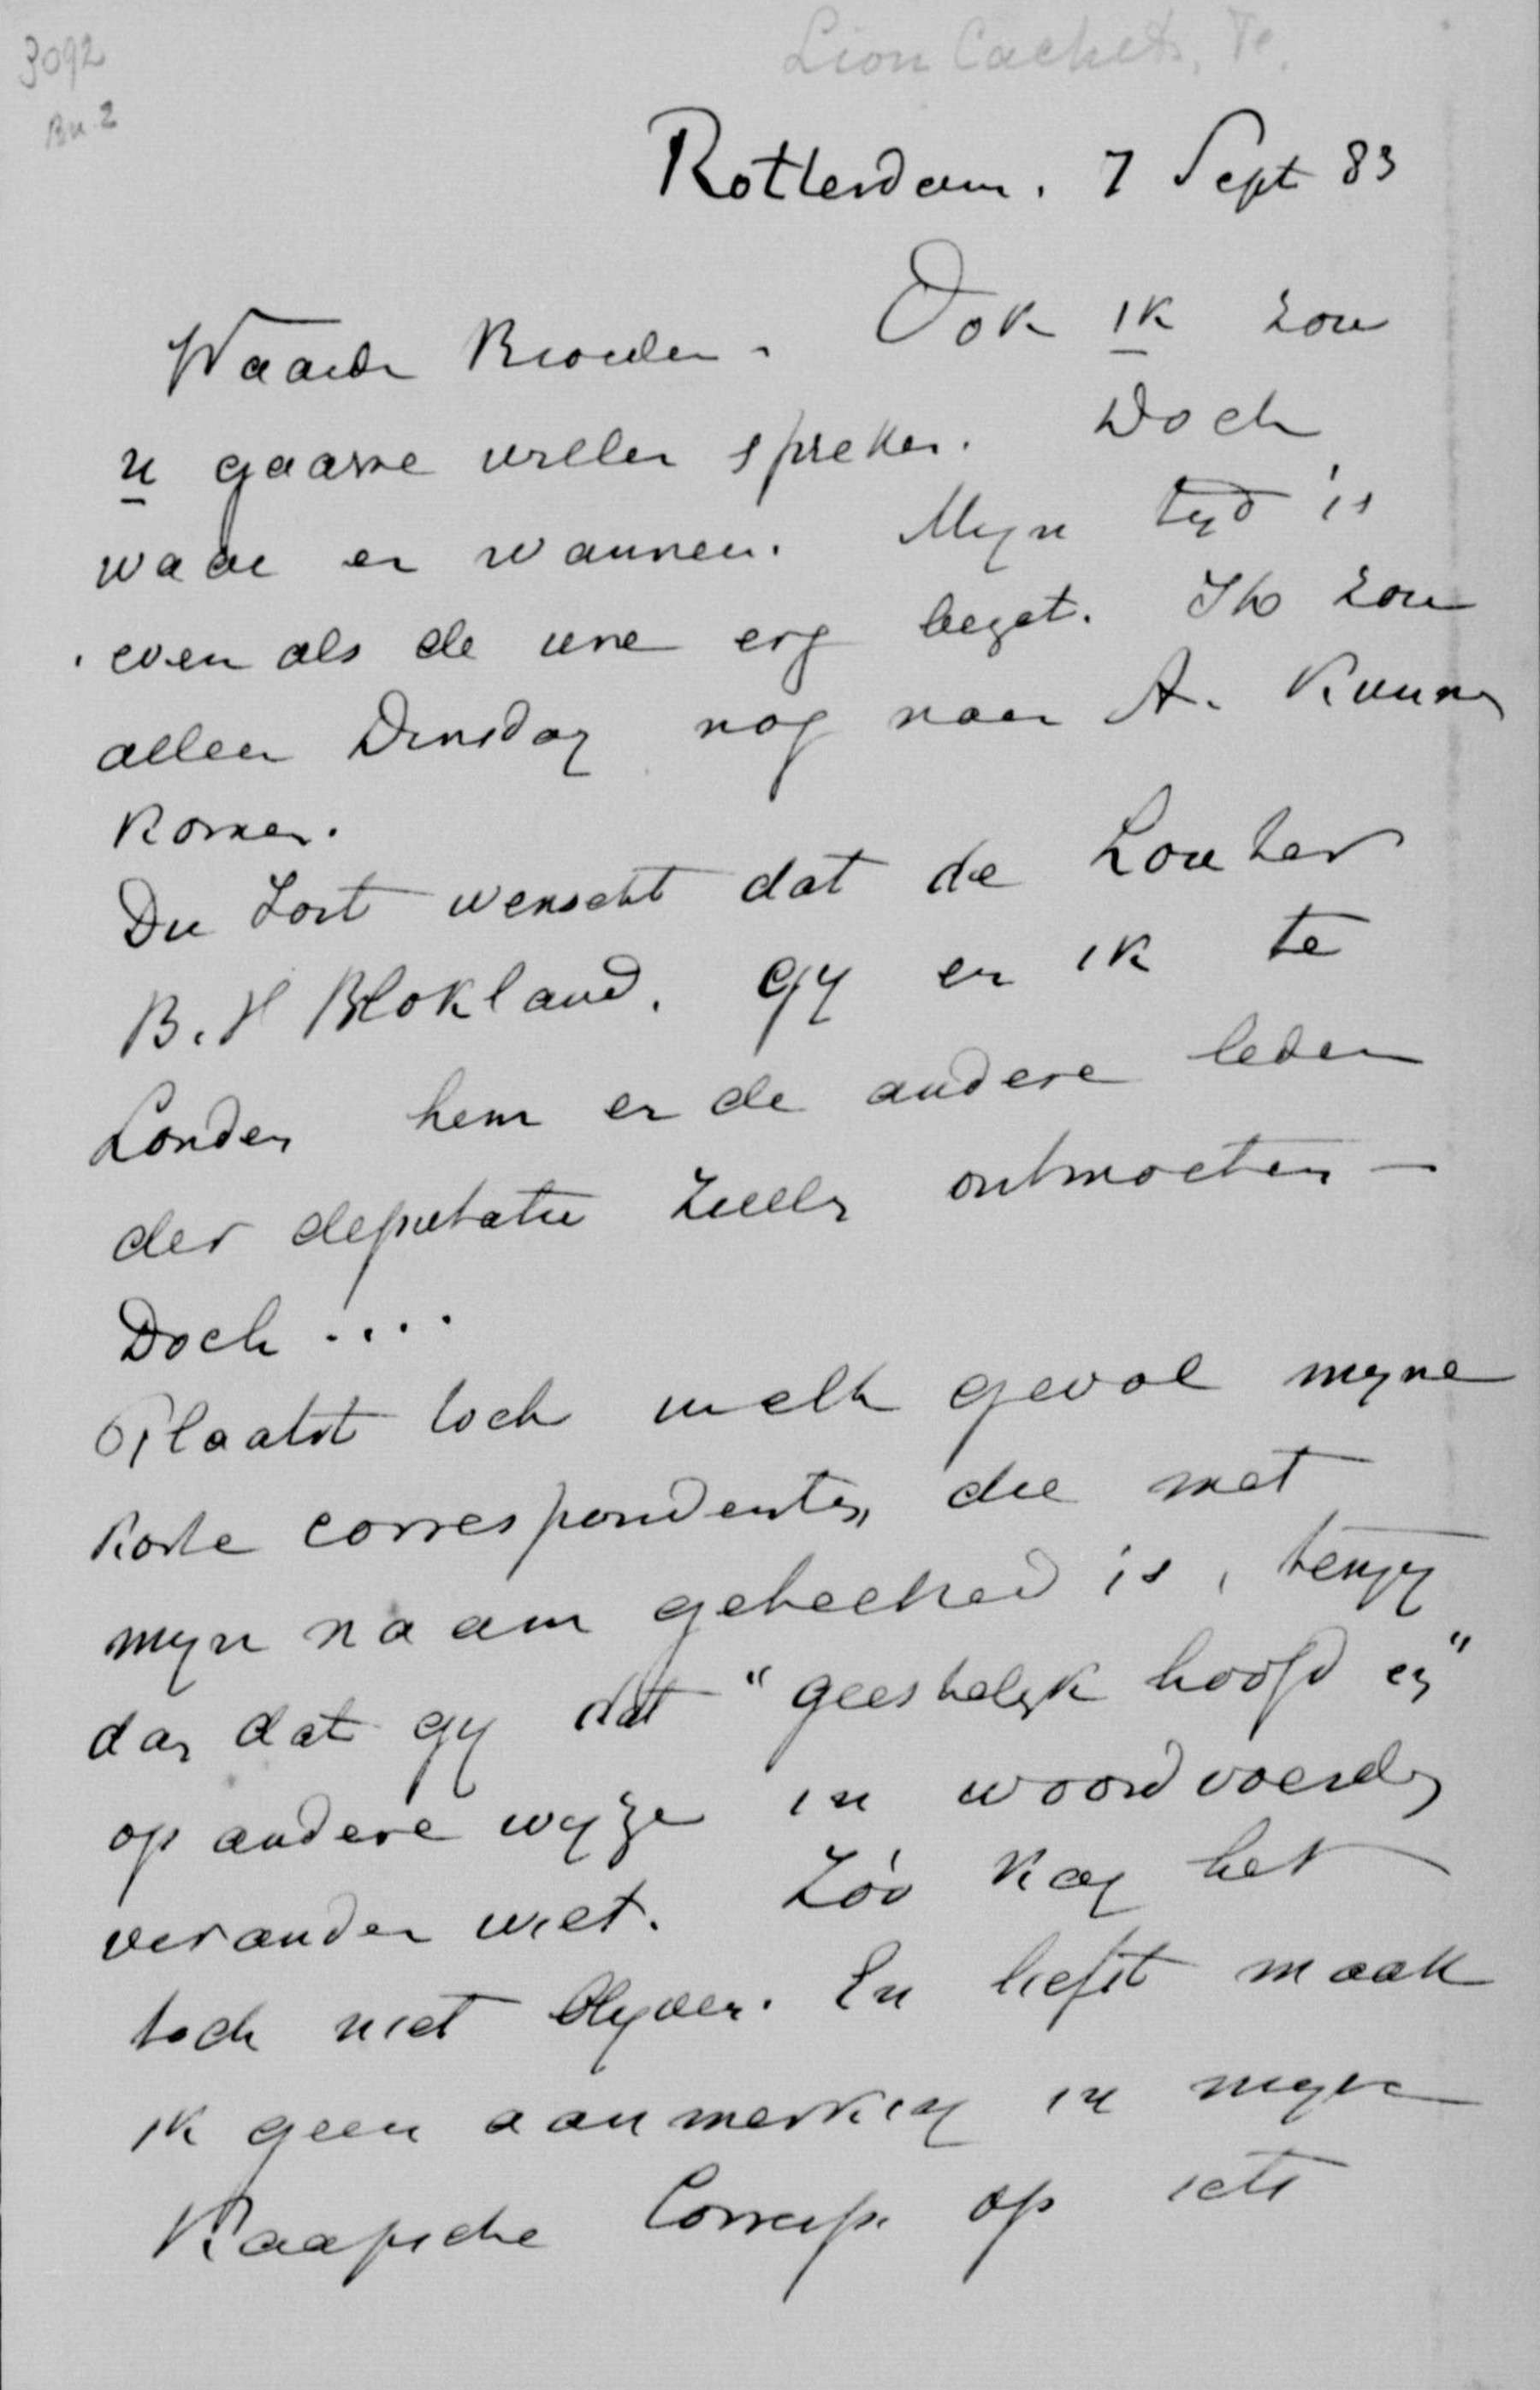 3092
Bu. 2
Lion Cachet, F.
Rotterdam. 7 Sept 83
Waarde Broeder. Ook ik zou
u gaarne willen spreken. Doch
waar en wanneer. Mijn tijd is
even als de uwe erg bezet. Ik zou
alleen Dinsdag nog naar A. kunnen
komen.
Du Toit wenscht dat de Louter
B. H Blokland. Gij en ik te
Londen hem en de andere leden
der deputatie zullen ontmoeten —
Doch ....
Plaatst toch in elk geval mijne
korte correspondentie, die met
mijn naam geteekend is, tenzij
dan dat gij dat "geestelijk hoofd en"
op andere wijze in woordvoerder
veranderen wilt. Zóó kan het
toch niet blijven. En liefst maak
ik geen aanmerking in mijne
Kaapsche Corresp. op iets